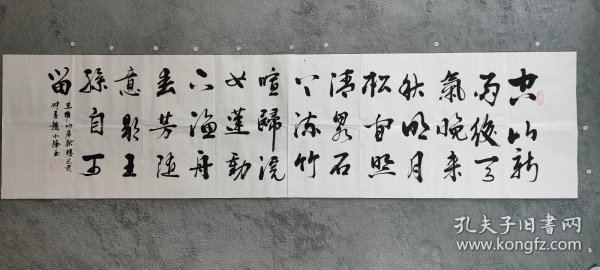 空山新
雨後天
氣晚来
秋明月
松間照
清泉石
上流竹
喧歸浣
女蓮動
下漁舟
春芳随
意歇王
孫自可
留
王維山居秋暝己亥
趙小 書
孔夫子旧书网
www.kongfz.com